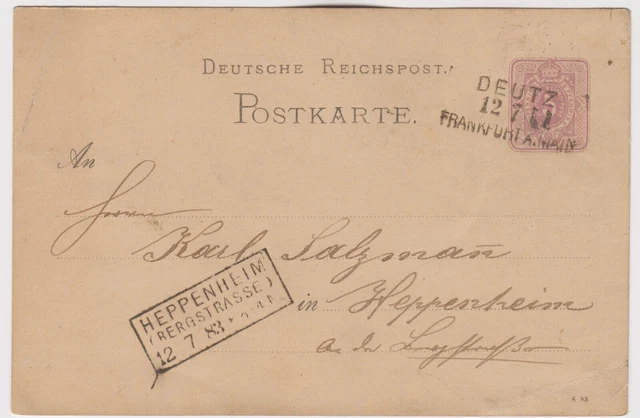 DEUTSCHE REICHSPOST.
POSTKARTE.
DEUTZ
12 7
FRANKFURT A. MAIN
An
Herrn
Karl Salzmann
in Heppenheim
a. der Bergstraße
HEPPENHEIM
(BERGSTRASSE)
12 7 83